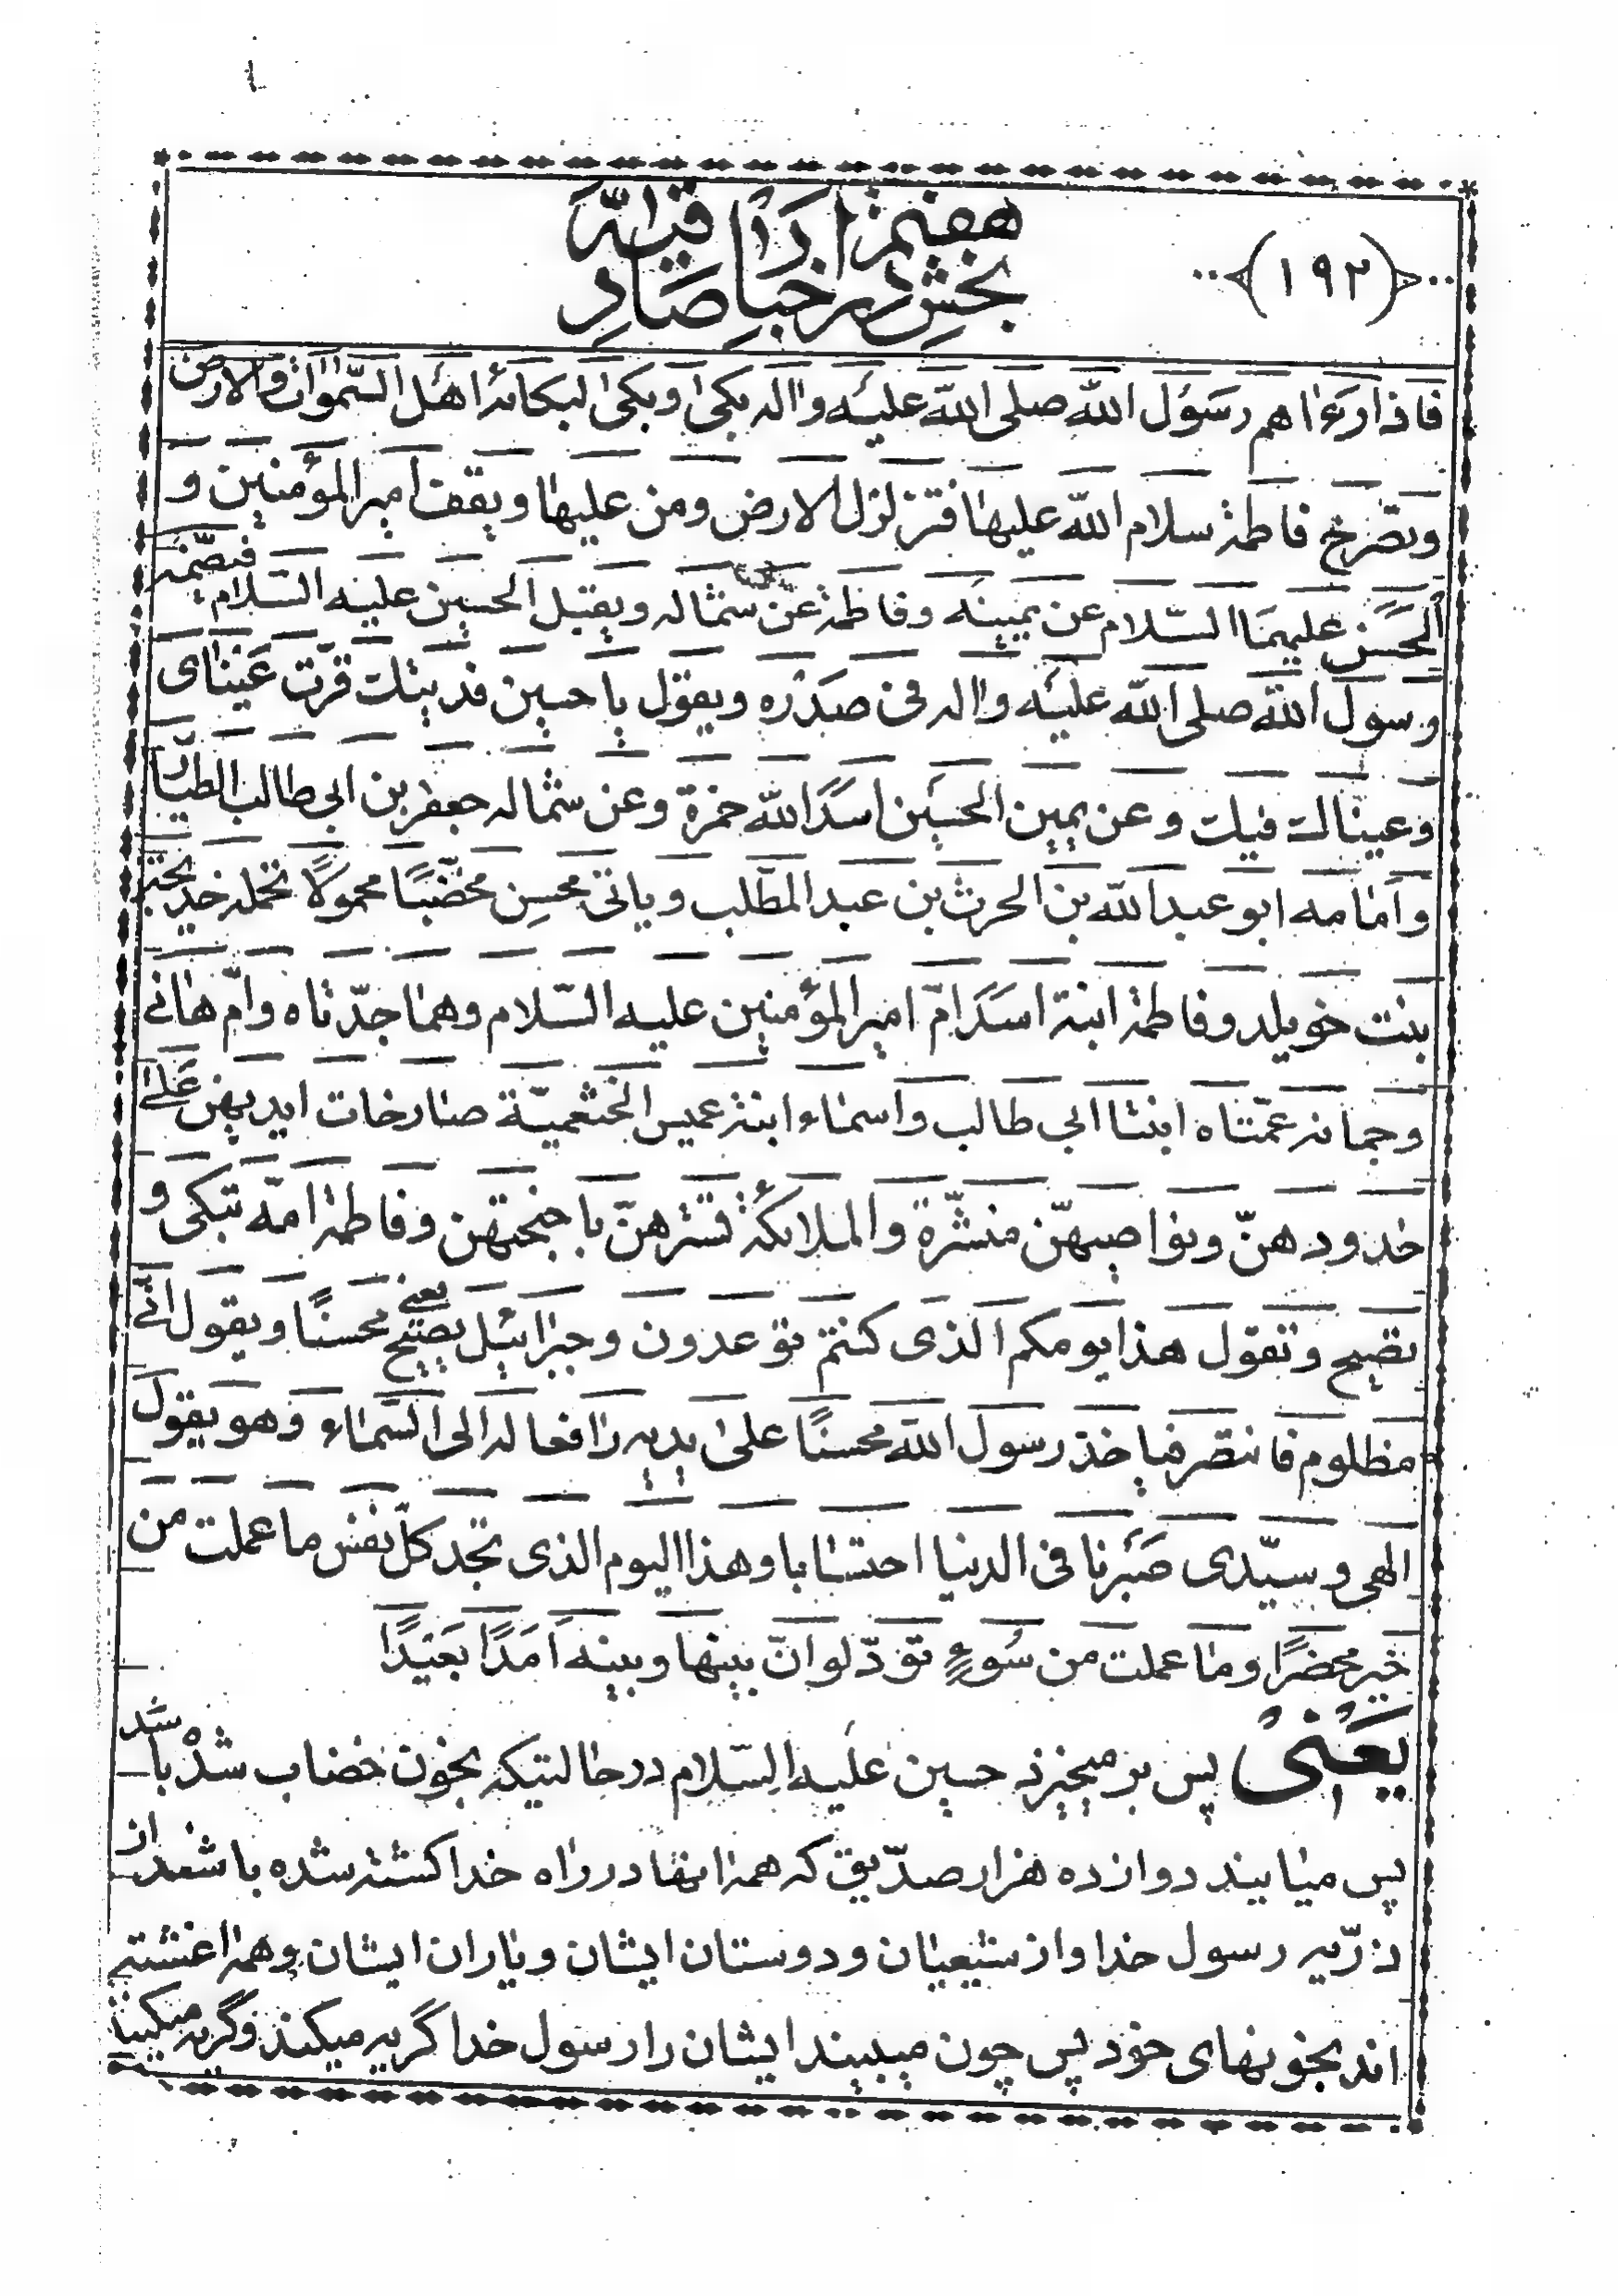 ﴿١٩٢﴾
بخش هفتم در اخبار صادقیه
فاذا رءاهم رسول الله صلی الله علیه واله بکی وبکی لبکائه اهل السموات والارض
وتصرخ فاطمة سلام الله علیها فتزلزل الارض ومن علیها ویقف امیرالمؤمنین و
الحسن علیهما السلام عن یمینه وفاطمة عن شماله ویقبل الحسین علیه السلام فیضمه
رسول الله صلی الله علیه واله فی صدره ویقول یا حسین فدیتك قرت عینای
وعیناك فیك وعن یمین الحسین اسدالله حمزة وعن شماله جعفر بن ابی طالب الطیار
وامامه ابو عبدالله بن الحرث بن عبدالمطلب ویاتی محسن مخضبا محمولا تحمله خدیجة
بنت خویلد وفاطمة ابنة اسد ام امیرالمؤمنین علیه السلام وهما جدتاه وام هانی
وجمانه عمتاه ابنتا ابی طالب واسماء ابنة عمیس الخثعمیة صارخات ایدیهن علی
خدودهن ونواصیهن منشرة والملائکة تسترهن باجنحتهن وفاطمة امه تبکی و
تصیح وتقول هذا یومکم الذی کنتم توعدون وجبرائیل یصیح یعنی محسنا ویقول انی
مظلوم فانتصر فیاخذ رسول الله محسنا علی یدیه رافعا له الی السماء وهو یقول
الهی وسیدی صبرنا فی الدنیا احتسابا وهذا الیوم الذی تجد کل نفس ما عملت من
خیر محضرا وما عملت من سوء تود لو ان بینها وبینه امدا بعیدا
یعنی پس بر میخیزد حسین علیه السلام در حالتیکه بخون خضاب شده باشد
پس میایند دوازده هزار صدیق که همه انها در راه خدا کشته شده باشند از
ذریه رسول خدا واز شیعیان ودوستان ایشان ویاران ایشان وهمه اغشته
اند بخونهای خود پس چون میبیند ایشان را رسول خدا گریه میکند وگریه میکنند